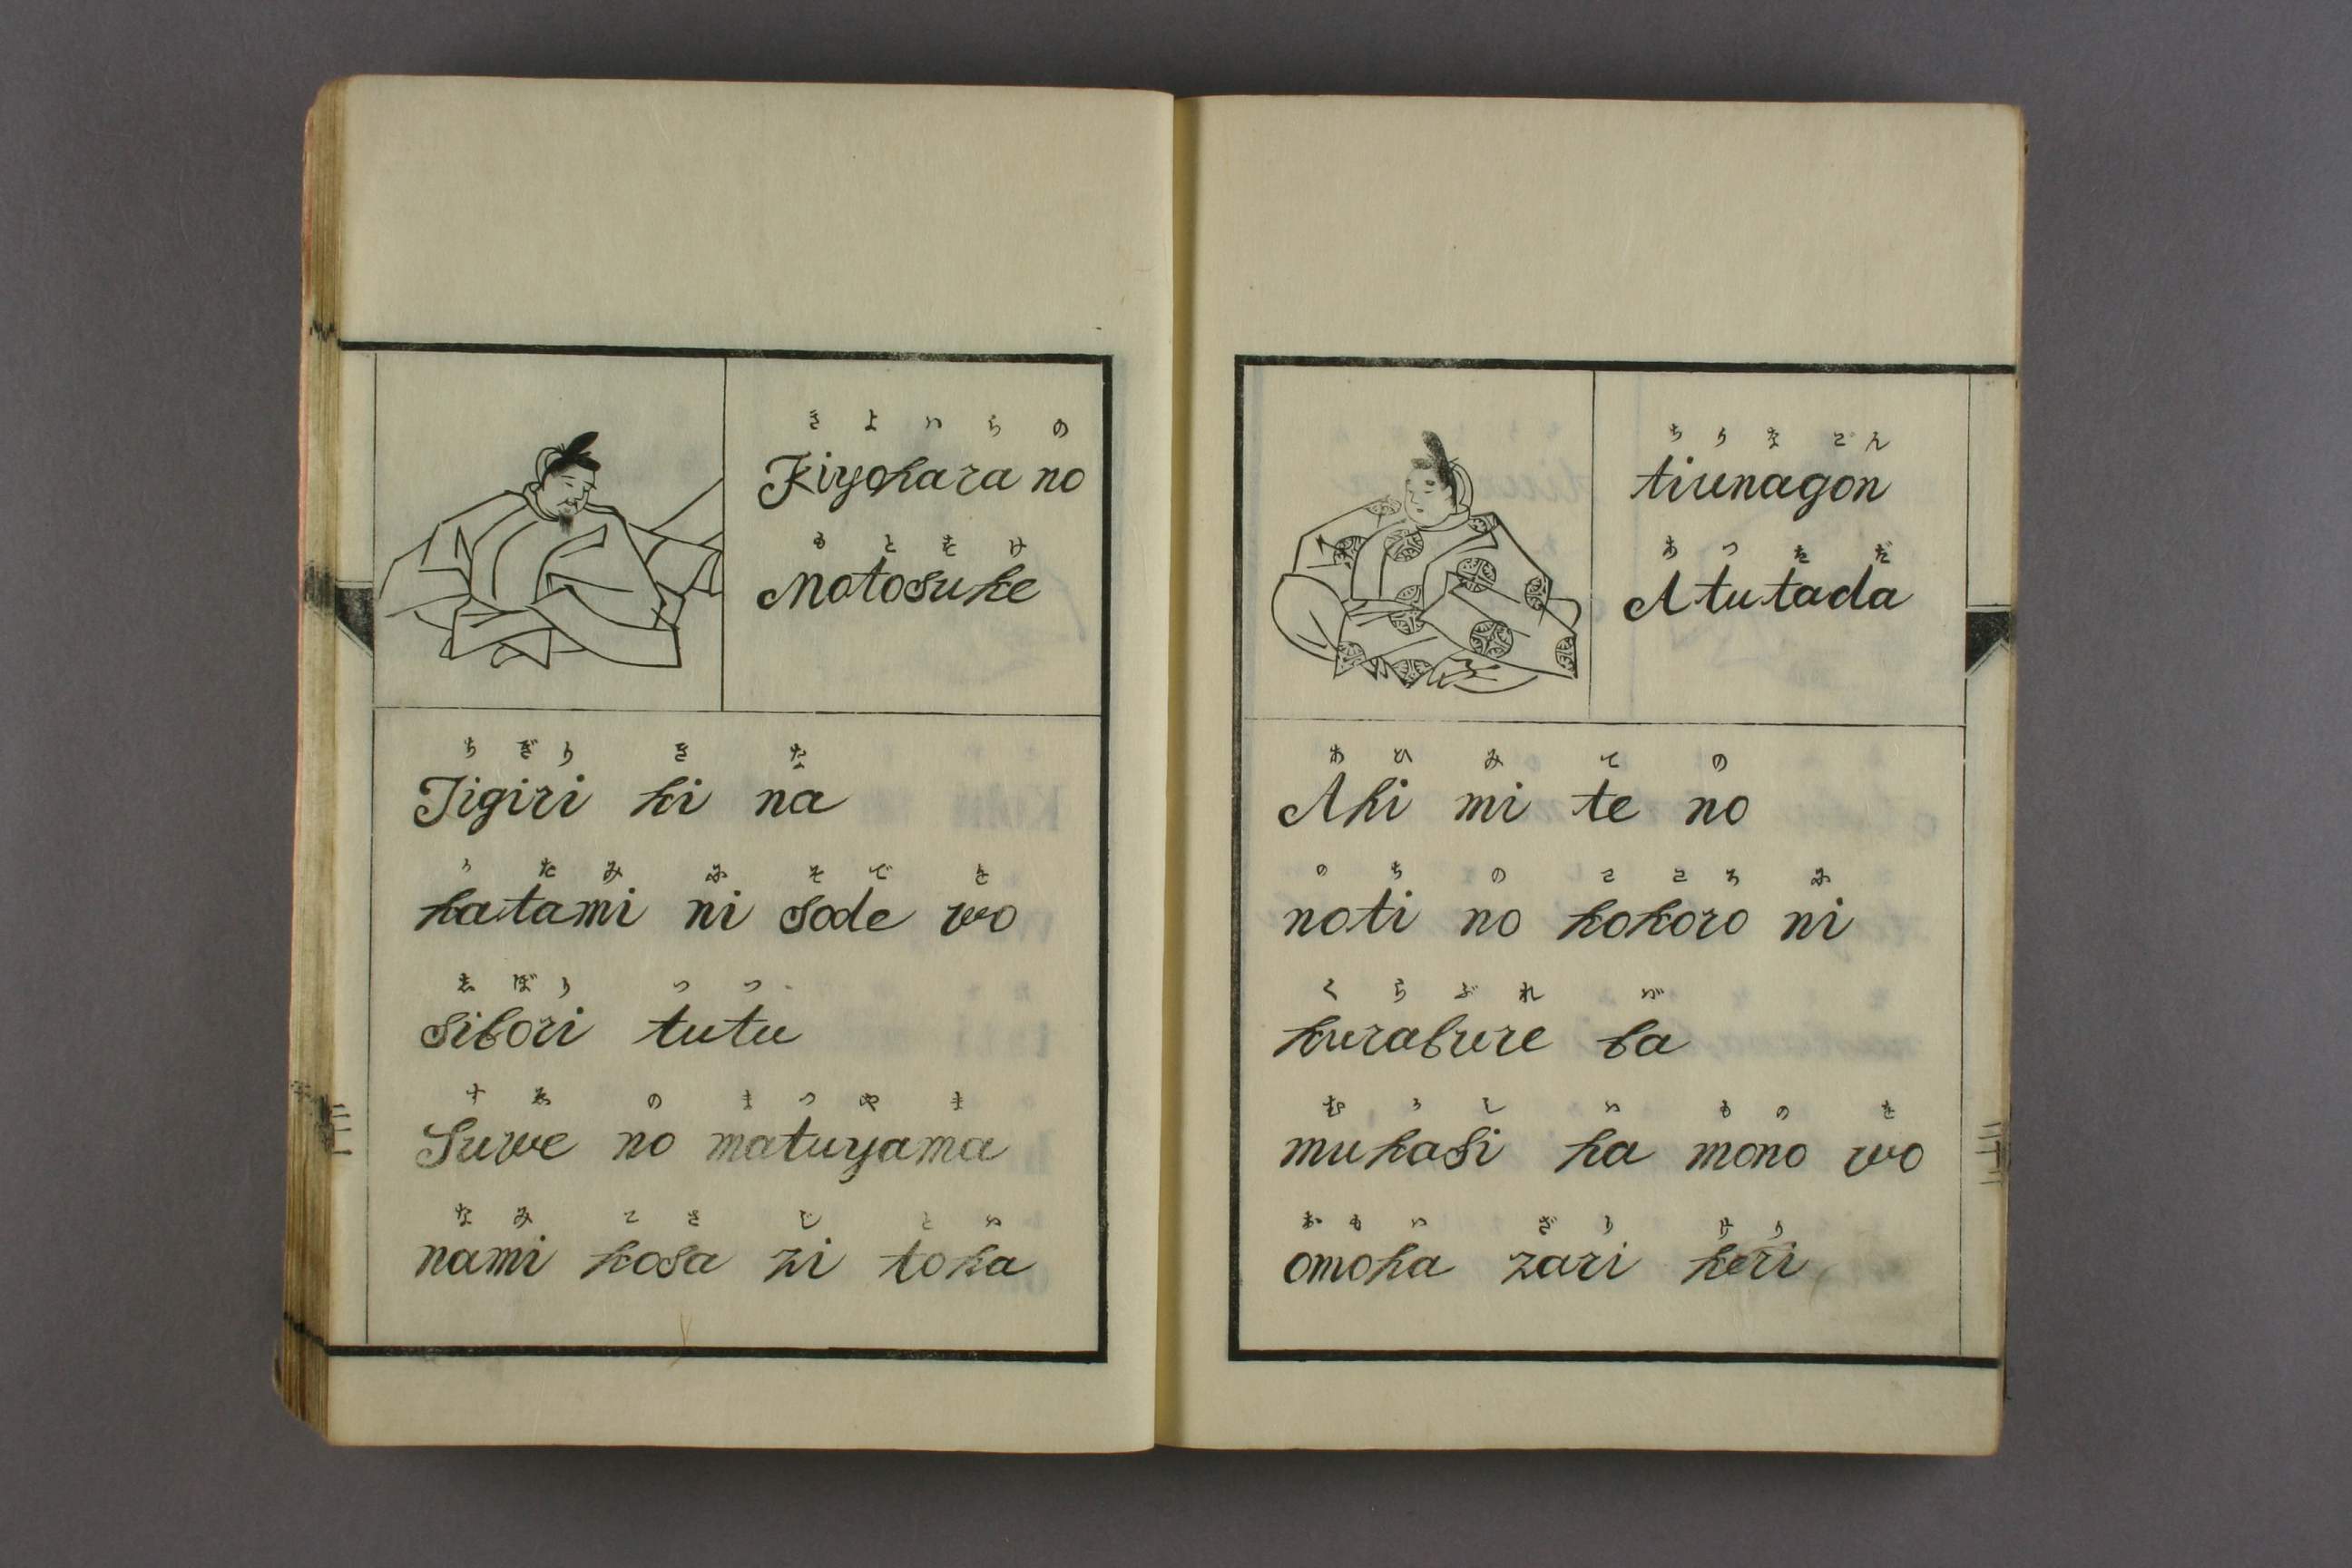 きよハらの
Kiyohara no
もとすけ
Motosuke
ちぎりきな
Tigiri ki na
かたみにそでを
katami ni sode wo
しぼりつつ
sibori tutu
すゑのまつやま
Suwe no matuyama
なみこさじとハ
nami kosa zi toha
ちうなごん
tiunagon
あつただ
Atutada
あひみての
Ahi mi te no
のちのこころに
noti no kokoro ni
くらぶれバ
kurabure ba
むかしハものを
mukasi ha mono wo
おもハざりけり
omoha zari keri